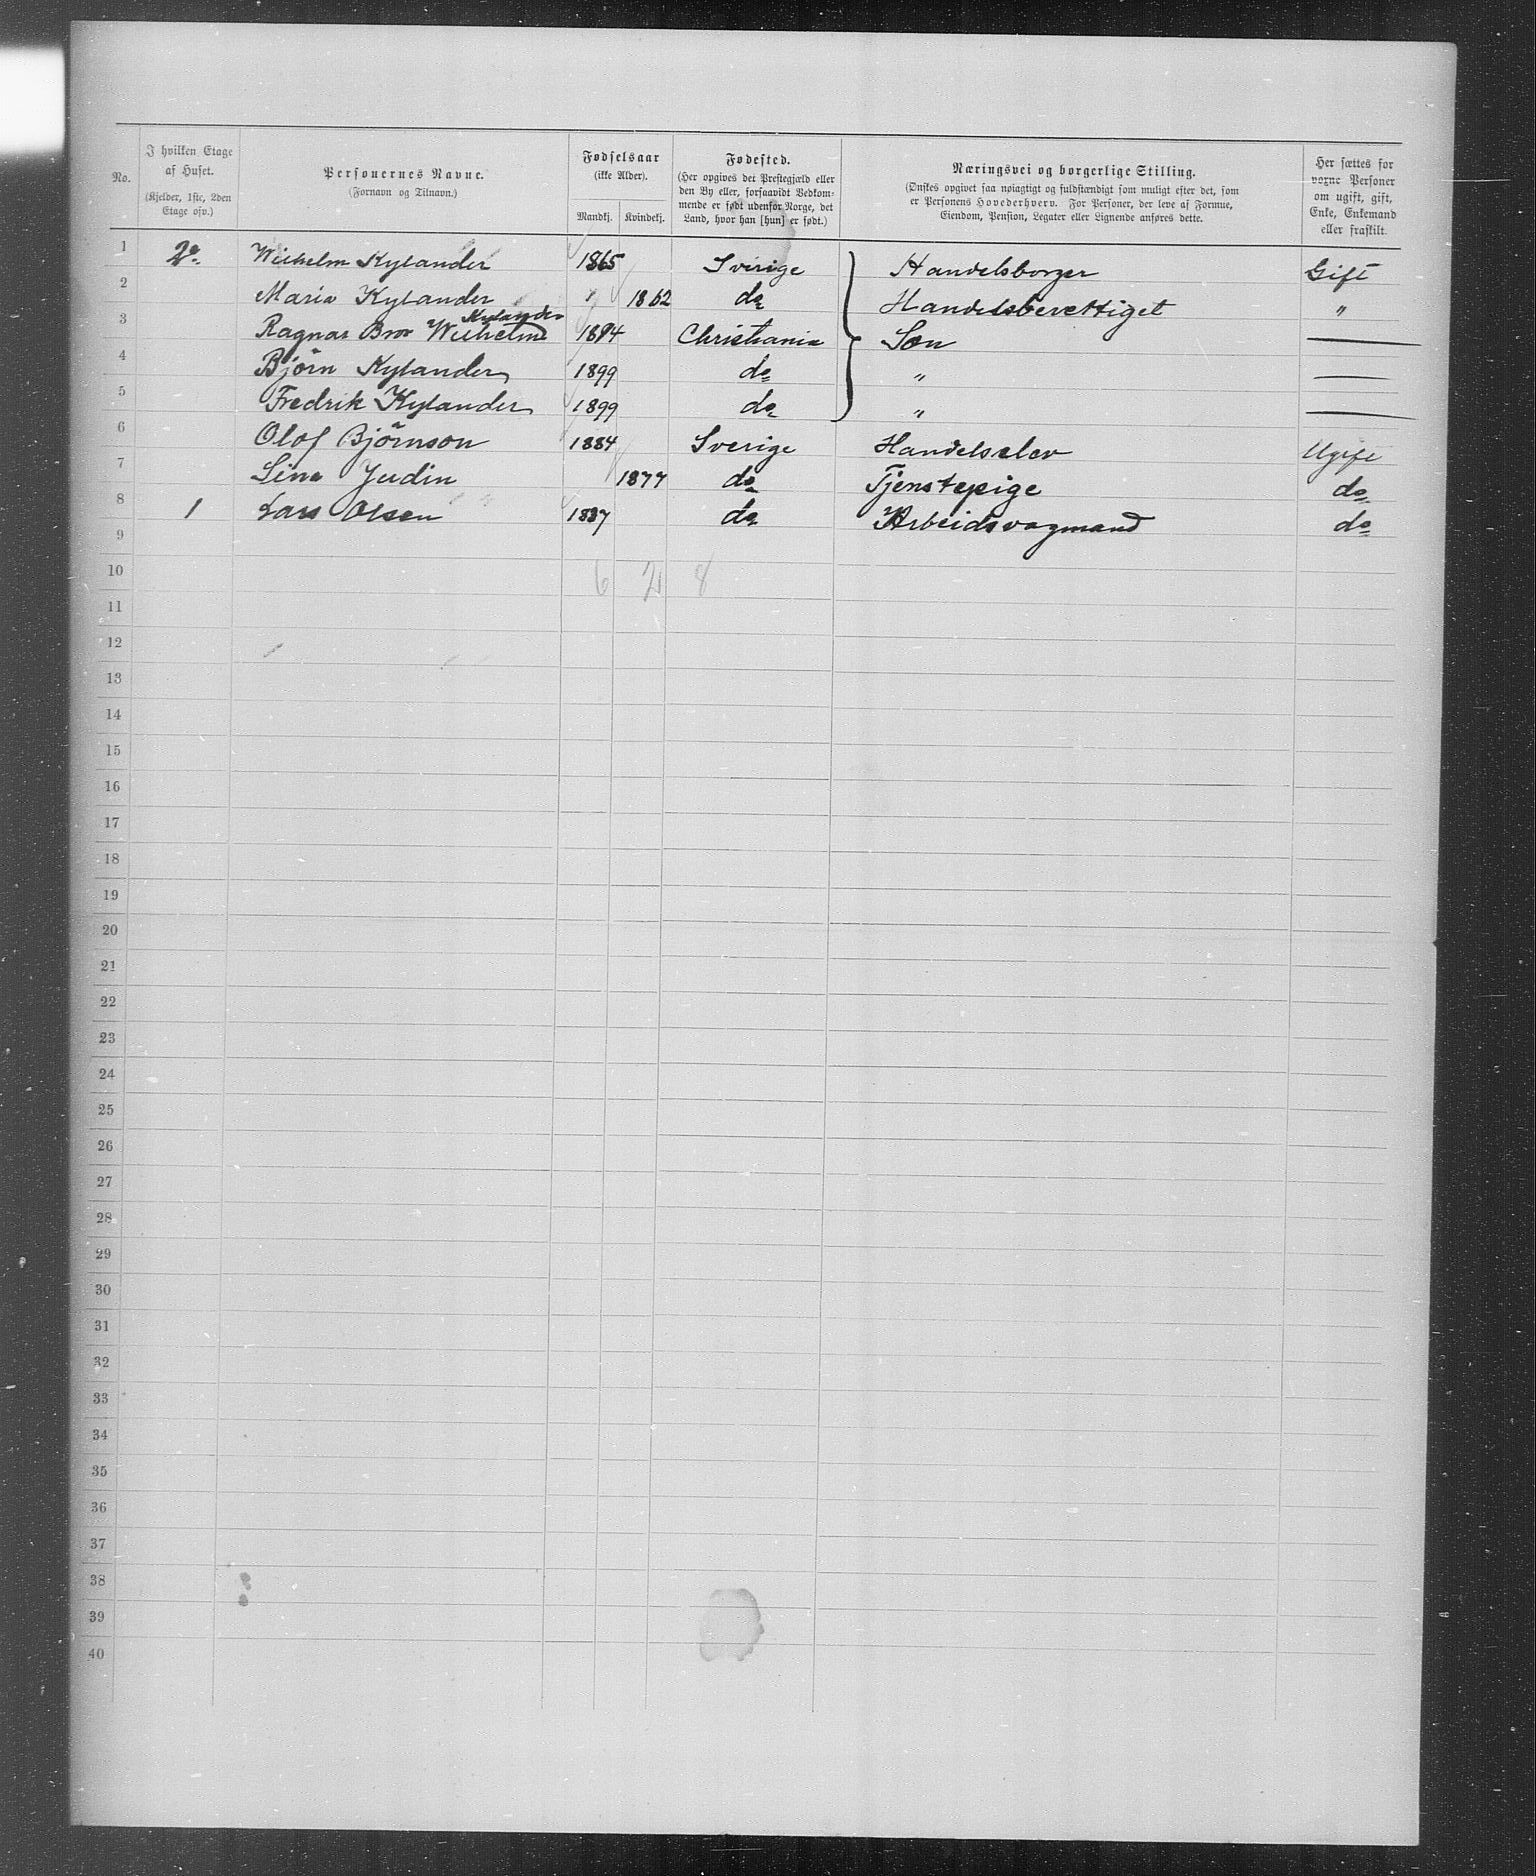 No. | I hvilken Etage af Huset. (Kjelder, 1ste, 2den Etage osv.) | Personernes Navne. (Fornavn og Tilnavn.) | Fødselsaar (ikke Alder). Mandkj. Kvindekj. | Fødested. (Her opgives det Prestegjæld eller den By eller, forsaavidt Vedkommende er født udenfor Norge, det Land, hvor han [hun] er født.) | Næringsvei og borgerlige Stilling. (Ønskes opgivet saa nøiagtigt og fuldstændigt som muligt efter det, som er Personens Hovederhverv. For Personer, der leve af Formue, Eiendom, Pension, Legater eller Lignende anføres dette. | Her sættes for voxne Personer om ugift, gift, Enke, Enkemand eller fraskilt.
1 2e. Wilhelm Kylander 1865 Sverige Handelsborger Gift
2 Maria Kylander 1862 do Handelsberettiget "
Kylander
3 Ragnar Bror Wilhelm 1894 Christiania Søn —
4 Björn Kylander 1899 do " —
5 Fredrik Kylander 1899 do " —
6 Olof Björnson 1884 Sverige Handelselev Ugift
7 Lina Judin 1877 do Tjenstepige do
8 1 Lars Olsen 1887 do Arbeidsvogmand do
9
10 6 2 8
11
12
13
14
15
16
17
18
19
20
21
22
23
24
25
26
27
28
29
30
31
32
33
34
35
36
37
38
39
40